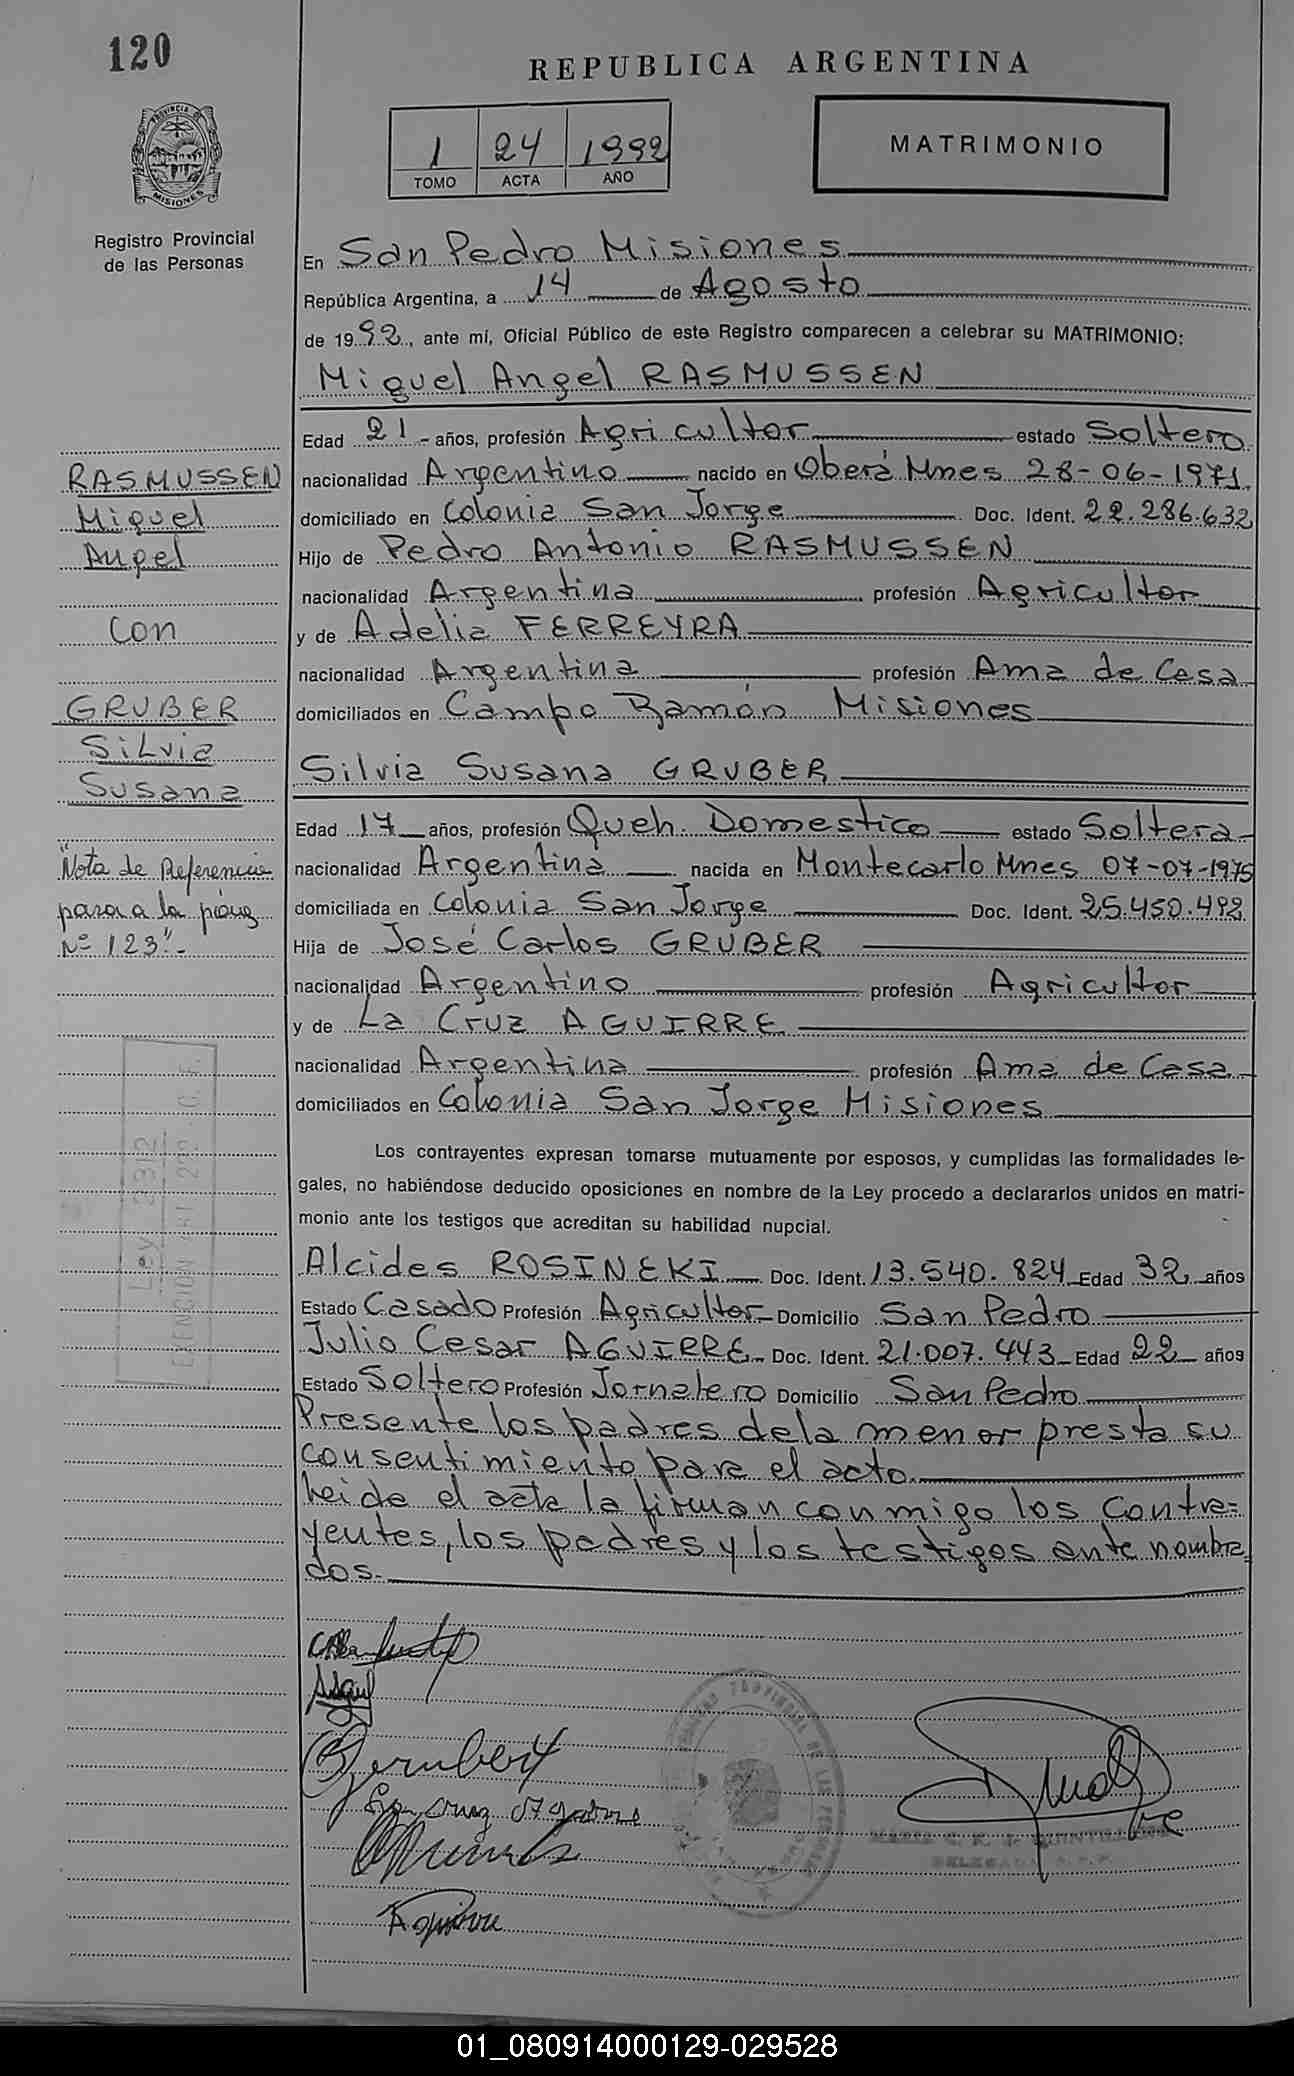 120
REPUBLICA ARGENTINA
PROVINCIA DE
MISIONES
1 24 1992
TOMO ACTA AÑO
MATRIMONIO
Registro Provincial
de las Personas
En San Pedro Misiones
República Argentina, a 14 de Agosto
de 1992, ante mí, Oficial Público de este Registro comparecen a celebrar su MATRIMONIO:
Miguel Angel RASMUSSEN
Edad 21 años, profesión Agricultor estado Soltero
nacionalidad Argentino nacido en Oberá Mnes 28-06-1971
domiciliado en Colonia San Jorge Doc. Ident. 22.286.632
Hijo de Pedro Antonio RASMUSSEN
nacionalidad Argentina profesión Agricultor
y de Adelia FERREYRA
nacionalidad Argentina profesión Ama de Casa
domiciliados en Campo Ramón Misiones
Silvia Susana GRUBER
Edad 17 años, profesión Queh. Domestico estado Soltera
nacionalidad Argentina nacida en Montecarlo Mnes 07-07-1975
domiciliada en Colonia San Jorge Doc. Ident. 25.450.492
Hija de José Carlos GRUBER
nacionalidad Argentino profesión Agricultor
y de La Cruz AGUIRRE
nacionalidad Argentina profesión Ama de Casa
domiciliados en Colonia San Jorge Misiones
Los contrayentes expresan tomarse mutuamente por esposos, y cumplidas las formalidades le-
gales, no habiéndose deducido oposiciones en nombre de la Ley procedo a declararlos unidos en matri-
monio ante los testigos que acreditan su habilidad nupcial.
Alcides ROSINEKI Doc. Ident. 13.540.824 Edad 32 años
Estado Casado Profesión Agricultor Domicilio San Pedro
Julio Cesar AGUIRRE Doc. Ident. 21.007.443 Edad 22 años
Estado Soltero Profesión Jornalero Domicilio San Pedro
Presente los padres de la menor presta su
consentimiento para el acto.
Leida el acta la firman conmigo los contra=
yentes, los padres y los testigos ante nombra
dos.-
RASMUSSEN
Miguel
Angel
con
GRUBER
SiLvia
Susana
"Nota de Referencia
pasa a la
Nº 123".-
Ley 2312
EXENCION
Gerubert
Cruz
Aguirre
QUINTILL
DELEGADA
01_080914000129-029528